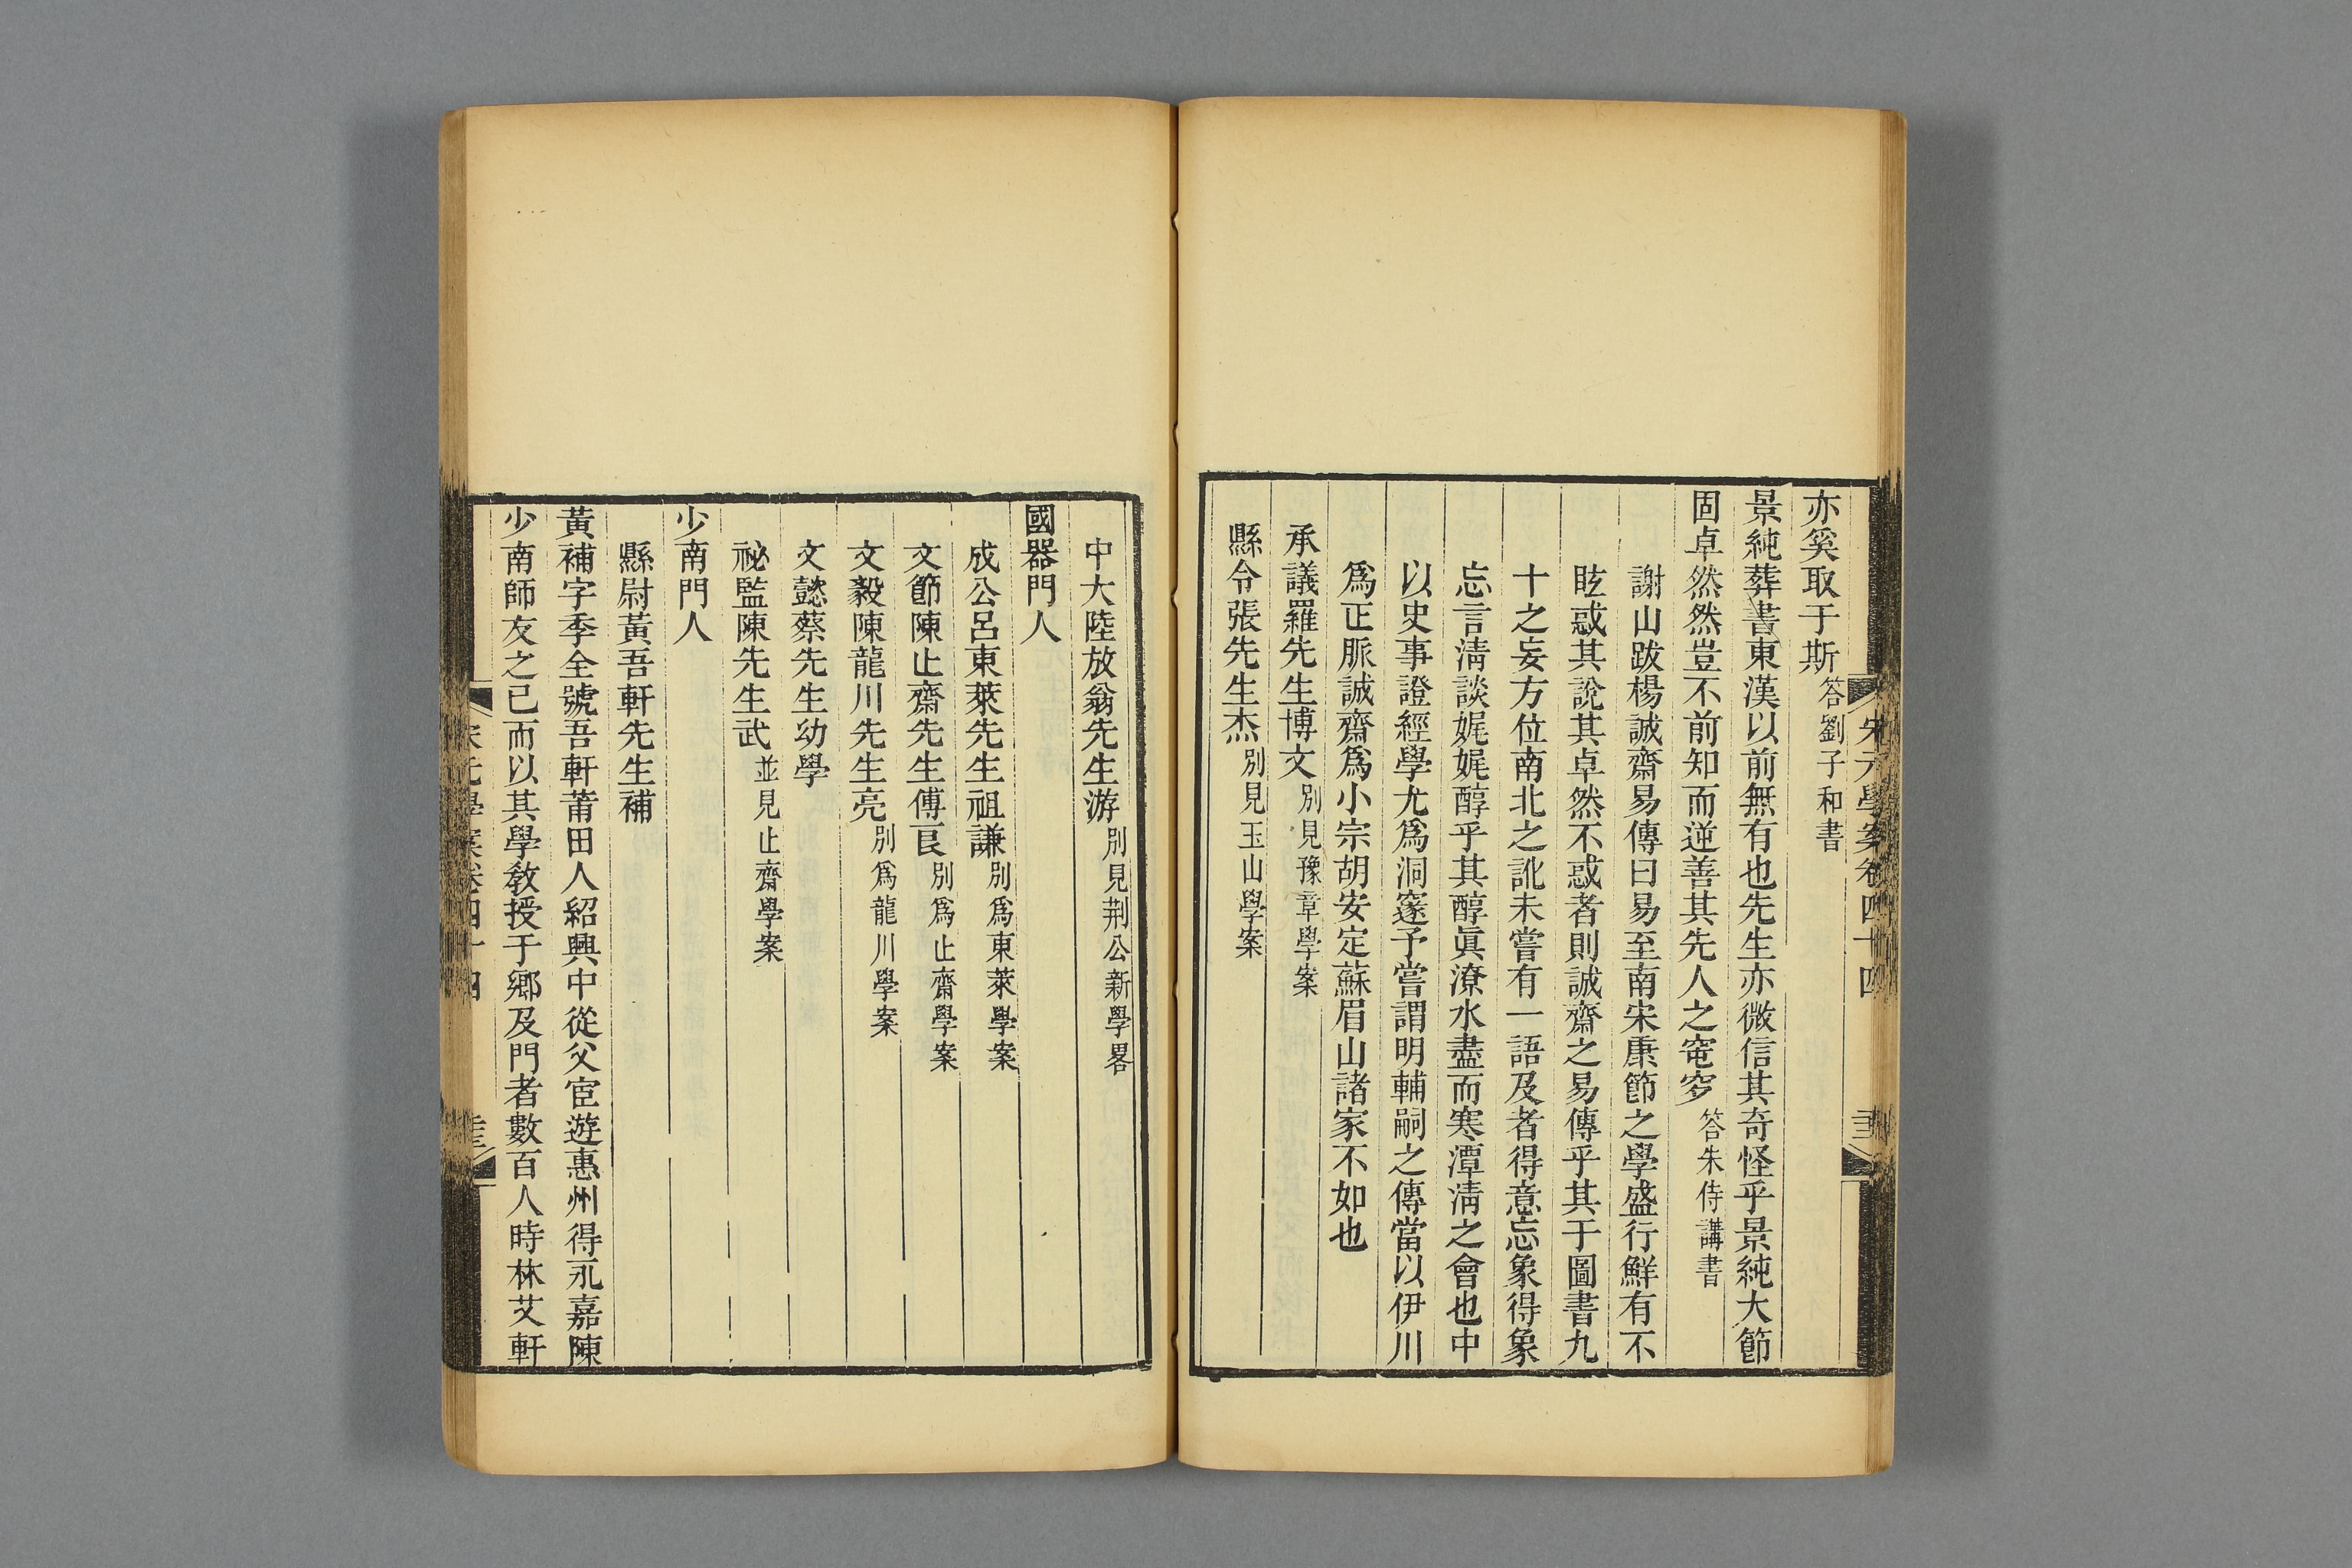 宋元學案卷四十四
亦奚取于斯答劉子和書
景純葬書東漢以前無有也先生亦微信其奇怪乎景純大節
固卓然然豈不前知而逆善其先人之窀穸答朱侍講書
謝山跋楊誠齋易傳曰易至南宋康節之學盛行鮮有不
眩惑其說其卓然不惑者則誠齋之易傳乎其于圖書九
十之妄方位南北之訛未嘗有一語及者得意忘象得象
忘言清談娓娓醇乎其醇真潦水盡而寒潭清之會也中
以史事證經學尤爲洞邃予嘗謂明輔嗣之傳當以伊川
爲正脈誠齋爲小宗胡安定蘇眉山諸家不如也
承議羅先生博文別見豫章學案
縣令張先生杰別見玉山學案
中大陸放翁先生游別見荆公新學畧
國器門人
成公呂東萊先生祖謙別爲東萊學案
文節陳止齋先生傅良別爲止齋學案
文毅陳龍川先生亮別爲龍川學案
文懿蔡先生幼學
祕監陳先生武並見止齋學案
少南門人
縣尉黃吾軒先生補
黃補字季全號吾軒莆田人紹興中從父宦遊惠州得永嘉陳
少南師友之已而以其學敎授于鄉及門者數百人時林艾軒
宋元學案卷四十四